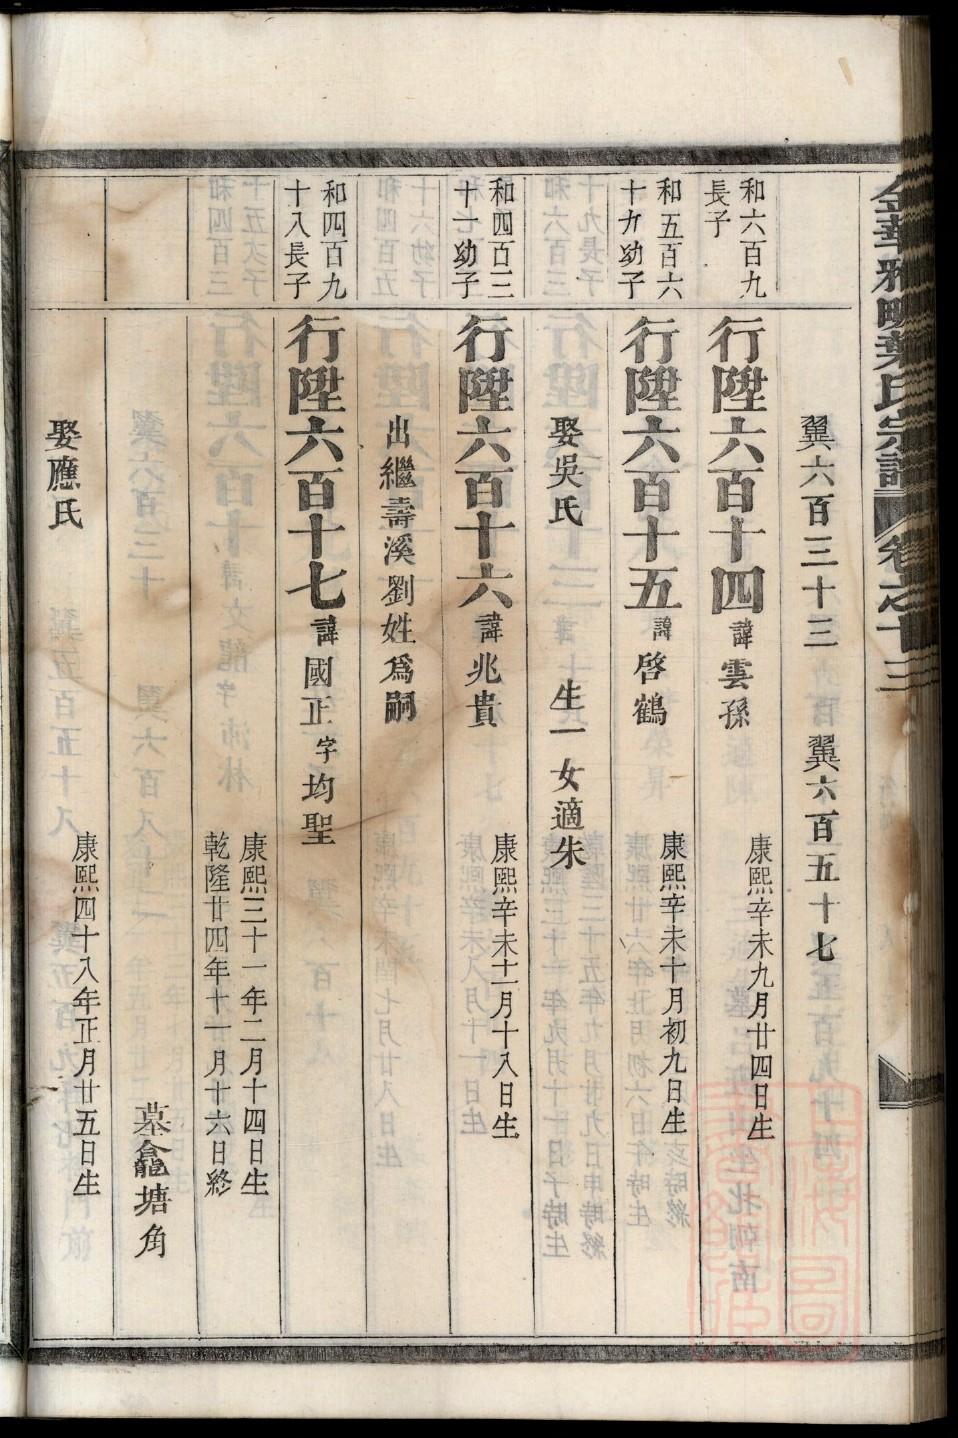 金華雅畈葉氏宗譜 卷之十三
翼六百三十三 翼六百五十七
和六百九
長子
行陞六百十四 諱雲孫
康熙辛未九月廿四日生
和五百六
十九幼子
行陞六百十五 諱啓鶴
康熙辛未十月初九日生
娶吳氏 生一女適朱
和四百三
十一幼子
行陞六百十六 諱兆貴
康熙辛未十二月十八日生
出繼壽溪劉姓爲嗣
和四百九
十八長子
行陞六百十七 諱國正 字均聖
康熙三十一年二月十四日生
乾隆廿四年十一月廿六日終
墓龕塘角
娶應氏
康熙四十八年正月廿五日生